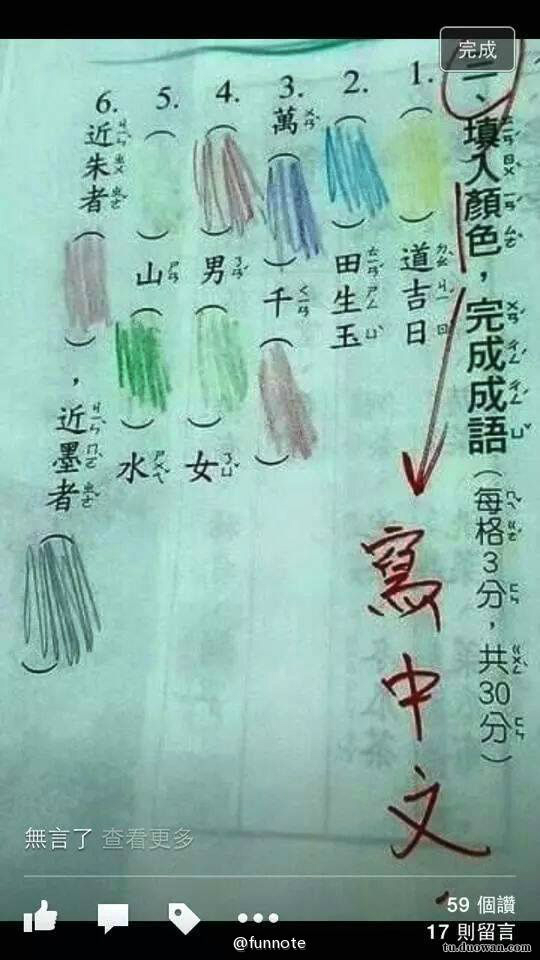 完成
二、填入顏色，完成成語（每格3分，共30分）
1.（ ）道吉日
2.（ ）田生玉
3.萬（ ）千（ ）
4.（ ）男（ ）女
5.（ ）山（ ）水
6.近朱者（ ），近墨者（ ）
寫中文
無言了 查看更多
59 個讚
17 則留言
@funnote
tu.duowan.com